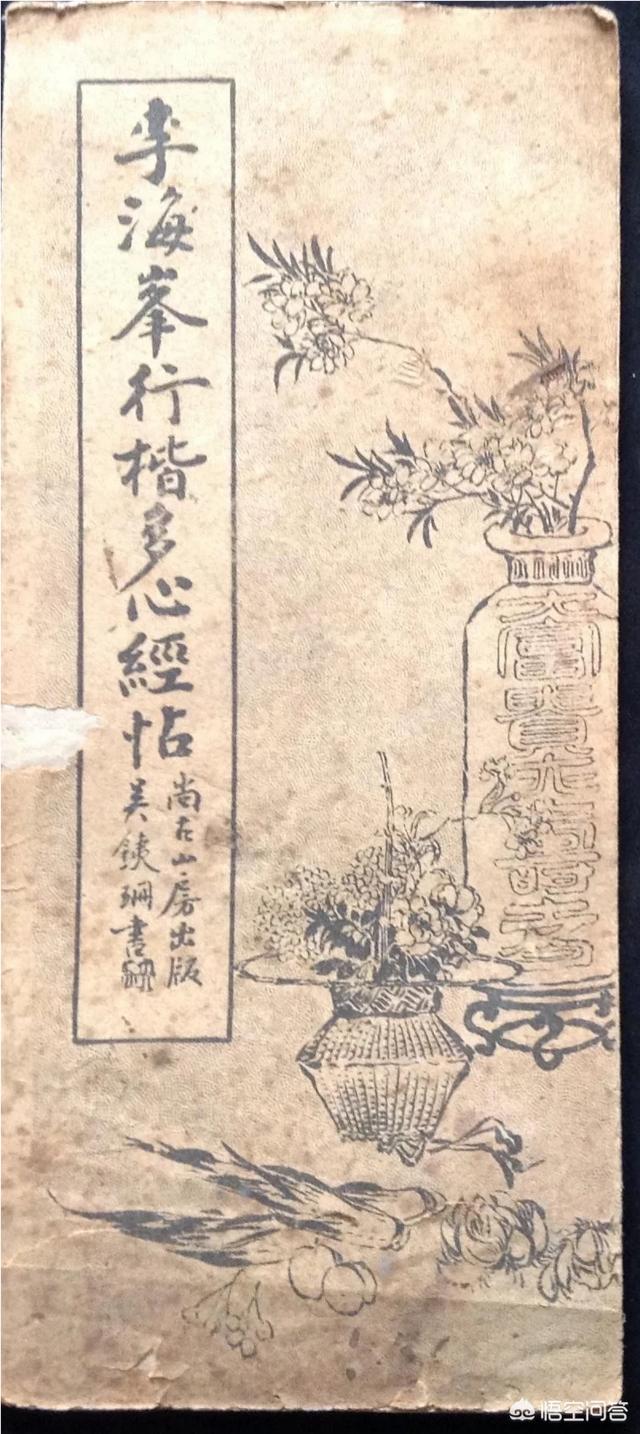 李海峯行楷多心經帖
尚古山房出版
吳銕珊書
大富貴亦壽
悟空问答